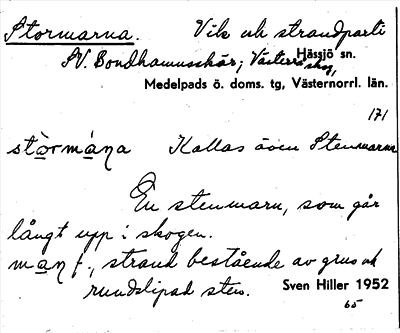 Stormarna. Vik och strandparti
SV. Bondhamnsskär; Västerå skog, Hässjö sn.
Medelpads ö. doms. tg, Västernorrl. län.
171
stòrmána Kallas även Stenmarna
En stenmarn, som går
långt upp i skogen.
man f., strand bestående av grus och
rundslipad sten. Sven Hiller 1952
65